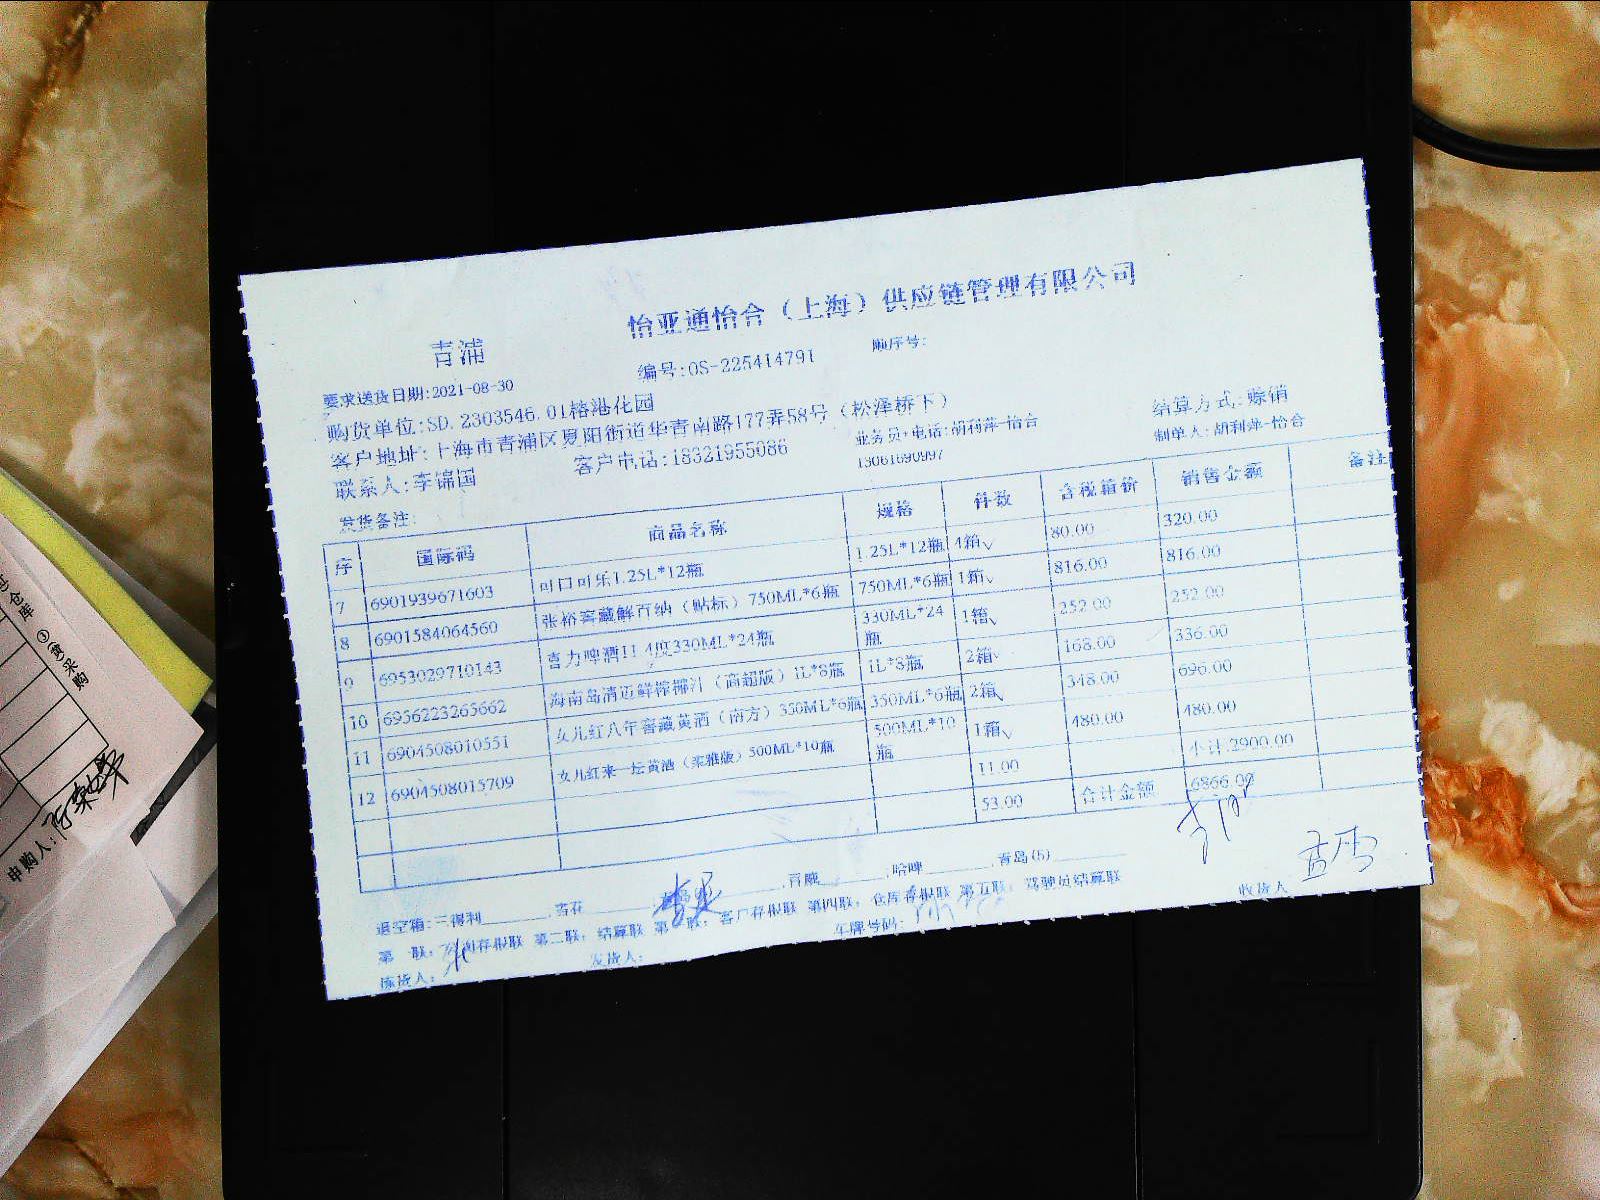 怡亚通怡合（上海）供应链管理有限公司
青浦
编号:OS-225414791
顺序号:
要求送货日期:2021-08-30
购货单位:SD.2303546.01榕港花园
结算方式:赊销
客户地址:上海市青浦区夏阳街道华青南路177弄58号（松泽桥下）
业务员+电话:胡利萍-怡合
13061690997
制单人:胡利萍-怡合
联系人:李锦国
客户电话:18321955086
发货备注:
序 国际码 商品名称 规格 件数 含税箱价 销售金额 备注
7 6901939671603 可口可乐1.25L*12瓶 1.25L*12瓶 4箱 80.00 320.00
8 6901584064560 张裕窖藏解百纳（贴标）750ML*6瓶 750ML*6瓶 1箱 816.00 816.00
9 6953029710143 喜力啤酒11.4度330ML*24瓶 330ML*24瓶 1箱 252.00 252.00
10 6956223265662 海南岛清迈鲜榨椰汁（商超版）1L*8瓶 1L*8瓶 2箱 168.00 336.00
11 6904508010551 女儿红八年窖藏黄酒（南方）350ML*6瓶 350ML*6瓶 2箱 348.00 696.00
12 6904508015709 女儿红来一坛黄酒（柔雅版）500ML*10瓶 500ML*10瓶 1箱 480.00 480.00
11.00 小计:2900.00
53.00 合计金额 6866.00
退空箱:三得利 ,雪花 ,百威 ,哈啤 ,青岛(5)
第一联: 存根联 第二联: 结算联 第 联: 客户存根联 第四联: 仓库存根联 第五联: 驾驶员结算联
拣货人:
发货人:
车牌号码:
收货人
仓库
③(黄)采购
申购人: